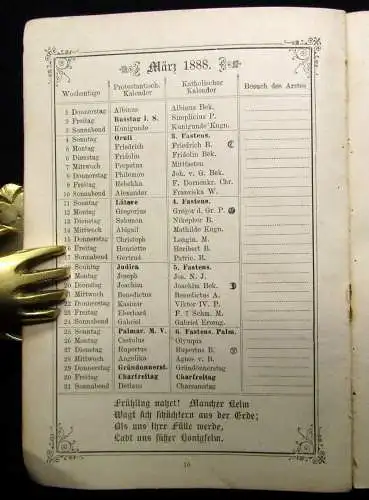 März 1888.
Wochentage Protestantisch. Kalender Katholischer Kalender Besuch des Arztes
1 Donnerstag Albinus Albinus Bek.
2 Freitag Busstag i. S. Simplicius P.
3 Sonnabend Kunigunde Kunigunde Kngn.
4 Sonntag Oculi 3. Fastens.
5 Montag Friedrich Friedrich R.
6 Dienstag Fridolin Fridolin Bek.
7 Mittwoch Perpetua Mittfasten
8 Donnerstag Philemon Joh. v. G. Bek.
9 Freitag Rebekka F. Dornenkr. Chr.
10 Sonnabend Alexander Franciska W.
11 Sonntag Lätare 4. Fastens.
12 Montag Gregorius Gregor d. Gr. P.
13 Dienstag Salomon Nikephor B.
14 Mittwoch Abigail Mathilde Kngn.
15 Donnerstag Christoph Longin. M.
16 Freitag Henriette Heribert B.
17 Sonnabend Gertrud Patric. B.
Sonntag Judica 5. Fastens.
Montag Joseph Jos. N. J.
20 Dienstag Joachim Joachim Bek.
21 Mittwoch Benedictus Benedictus A.
22 Donnerstag Kasimir Victor IV. P.
23 Freitag Eberhard F. 7 Schm. M.
24 Sonnabend Gabriel Gabriel Erzeng.
25 Sonntag Palmar. M. V. 6. Fastens. Palm.
26 Montag Castulus Olympia
27 Dienstag Rupertus Rupertus B.
28 Mittwoch Angelika Agnes v. B.
29 Donnerstag Gründonnerst. Gründonnerstag
30 Freitag Charfreitag Charfreitag
31 Sonnabend Detlaus Charsamstag
Frühling nahet! Mancher Keim
Wagt sich schüchtern aus der Erde;
Bis uns ihre Fülle werde,
Labt uns süßer Honigseim.
10